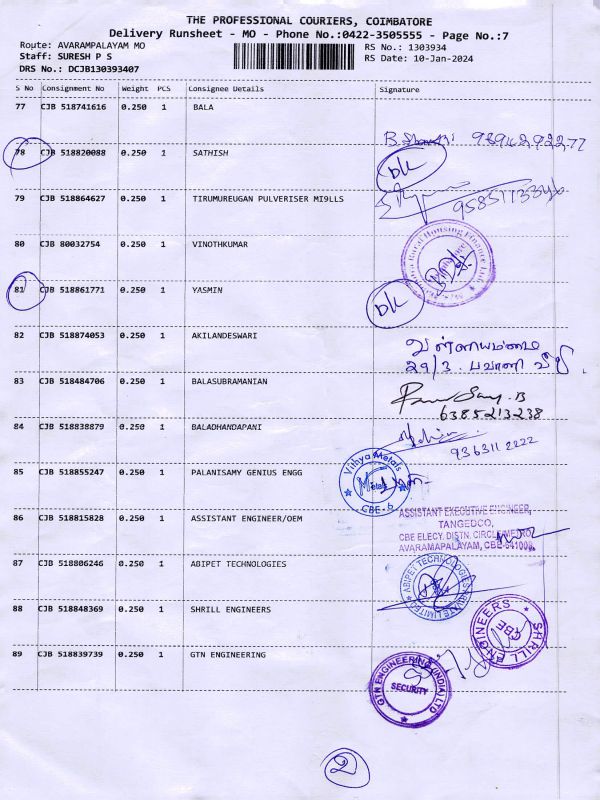 THE PROFESSIONAL COURIERS, COIMBATORE
Delivery Runsheet - MO - Phone No.:0422-3505555 - Page No.:7
Route: AVARAMPALAYAM MO
RS No.: 1303934
Staff: SURESH P S
RS Date: 10-Jan-2024
DRS No.: DCJB130393407
S No Consignment No Weight PCS Consignee Details Signature
77 CJB 518741616 0.250 1 BALA
78 CJB 518820088 0.250 1 SATHISH
79 CJB 518864627 0.250 1 TIRUMUREUGAN PULVERISER MI9LLS
80 CJB 80032754 0.250 1 VINOTHKUMAR
81 CJB 518861771 0.250 1 YASMIN
82 CJB 518874053 0.250 1 AKILANDESWARI
29/3. பவானி வீதி
83 CJB 518484706 0.250 1 BALASUBRAMANIAN
6385213238
84 CJB 518838879 0.250 1 BALADHANDAPANI
9363112222
85 CJB 518855247 0.250 1 PALANISAMY GENIUS ENGG
Vithya Metals
CBE - 6
86 CJB 518815828 0.250 1 ASSISTANT ENGINEER/OEM
ASSISTANT EXECUTIVE ENGINEER,
TANGEDCO,
CBE ELECY. DISTN. CIRCLE/METRO,
AVARAMAPALAYAM, CBE-641006.
87 CJB 518806246 0.250 1 ABIPET TECHNOLOGIES
ABIPET TECHNOLOGIES PRIVATE LIMITED
88 CJB 518848369 0.250 1 SHRILL ENGINEERS
SHRILL ENGINEERS
CBE
89 CJB 518839739 0.250 1 GTN ENGINEERING
GTN ENGINEERING (INDIA) LTD
SECURITY
2